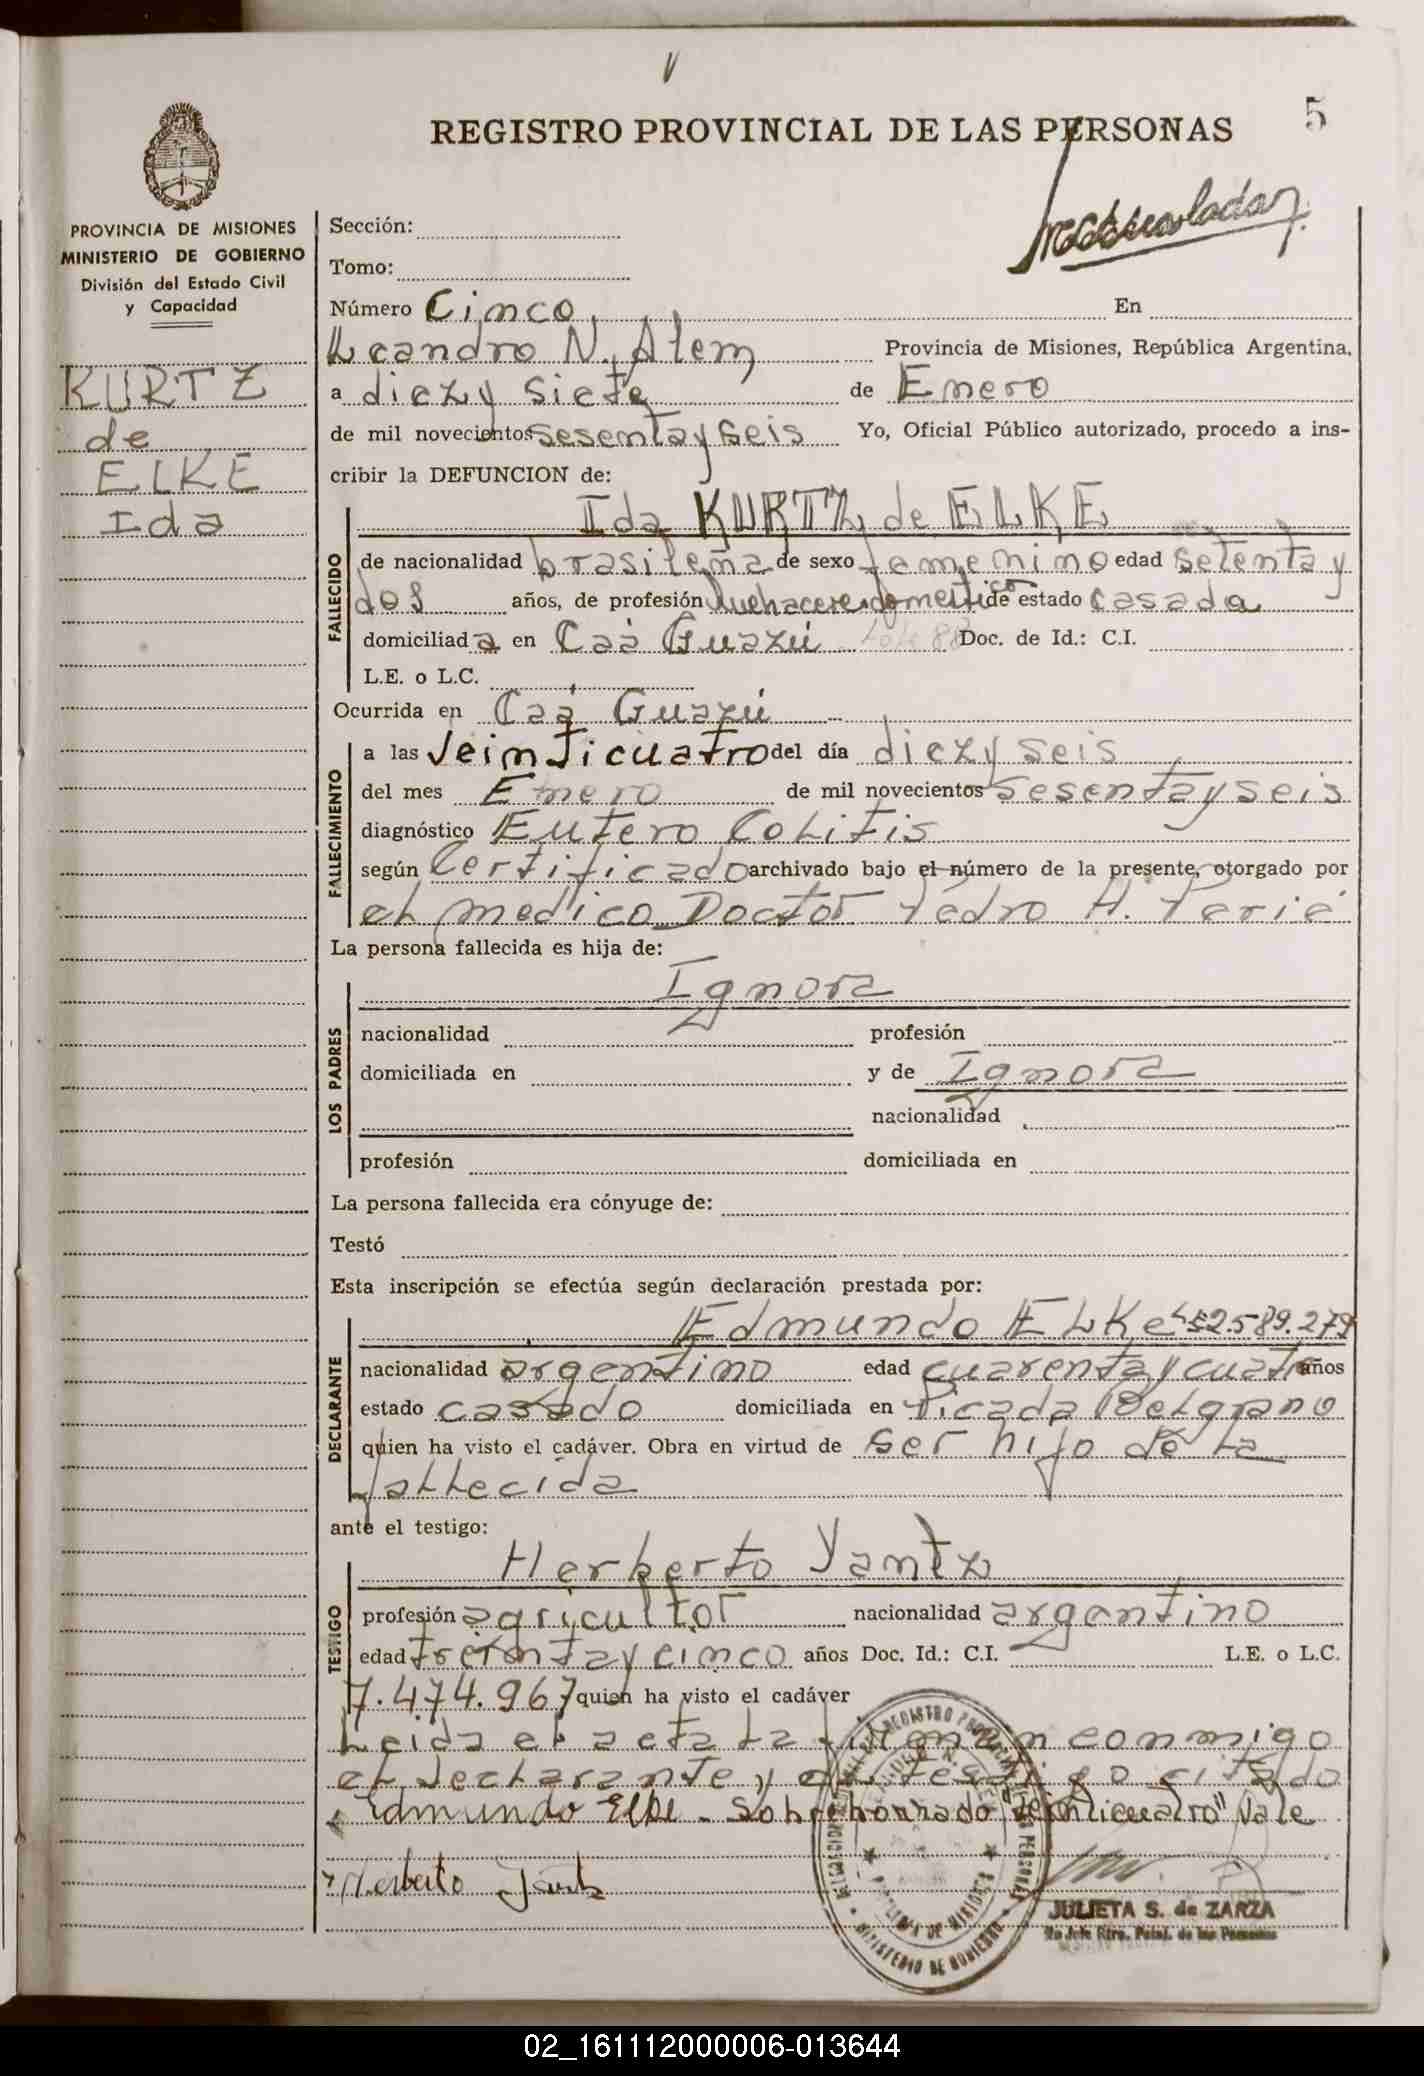 5
REGISTRO PROVINCIAL DE LAS PERSONAS
PROVINCIA DE MISIONES
MINISTERIO DE GOBIERNO
División del Estado Civil
y Capacidad
KURTZ
de
ELKE
Ida
Sección:
Tomo:
Número Cinco En
Leandro N. Alem Provincia de Misiones, República Argentina,
a diez y siete de Enero
de mil novecientos sesenta y seis Yo, Oficial Público autorizado, procedo a ins-
cribir la DEFUNCION de:
Ida KURTZ de ELKE
FALLECIDO
de nacionalidad brasileña de sexo femenino edad setenta y
dos años, de profesión quehaceres domestico de estado casada
domiciliada en Caá Guazú Lote 88 Doc. de Id.: C.I.
L.E. o L.C.
Ocurrida en Caá Guazú
FALLECIMIENTO
a las Veinticuatro del día diez y seis
del mes Enero de mil novecientos sesenta y seis
diagnóstico Eutero Colitis
según Certificado archivado bajo el número de la presente, otorgado por
el medico Doctor Pedro A. Perié
La persona fallecida es hija de:
LOS PADRES
Ignora
nacionalidad profesión
domiciliada en y de Ignora
nacionalidad
profesión domiciliada en
La persona fallecida era cónyuge de:
Testó
Esta inscripción se efectúa según declaración prestada por:
DECLARANTE
Edmundo ELKe LE 2.589.279
nacionalidad argentino edad cuarenta y cuatro años
estado casado domiciliada en Picada Belgrano
quien ha visto el cadáver. Obra en virtud de ser hijo de la
fallecida
ante el testigo:
TESTIGO
Herberto Yantz
profesión agricultor nacionalidad argentino
edad treinta y cinco años Doc. Id.: C.I. L.E. o L.C.
7.474.967 quien ha visto el cadáver
Leida el acta la firman conmigo
el declarante y el testigo citado
Edmundo Elke - Sobreborrado "Veinticuatro" Vale
Herberto Jantz
MINISTERIO DE GOBIERNO
JULIETA S. de ZARZA
2a Jefe Rtro. Pcial. de las Personas
02_161112000006-013644